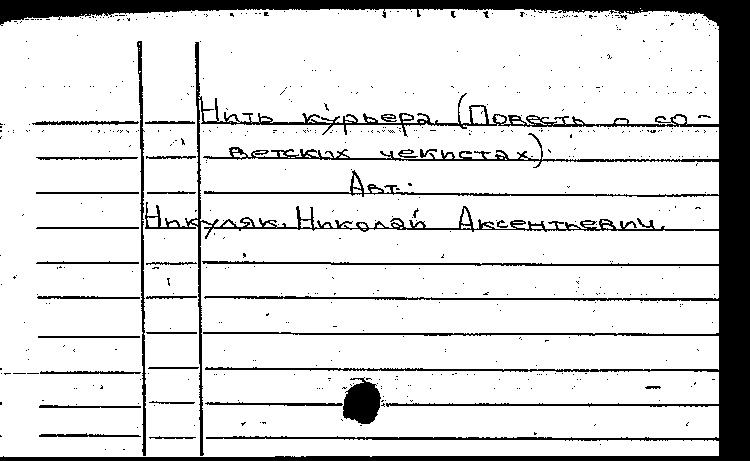 Нить курьера. (Повесть о со-
ветских чекистах).
Авт.:
Никуляк. Николай Аксентьевич.